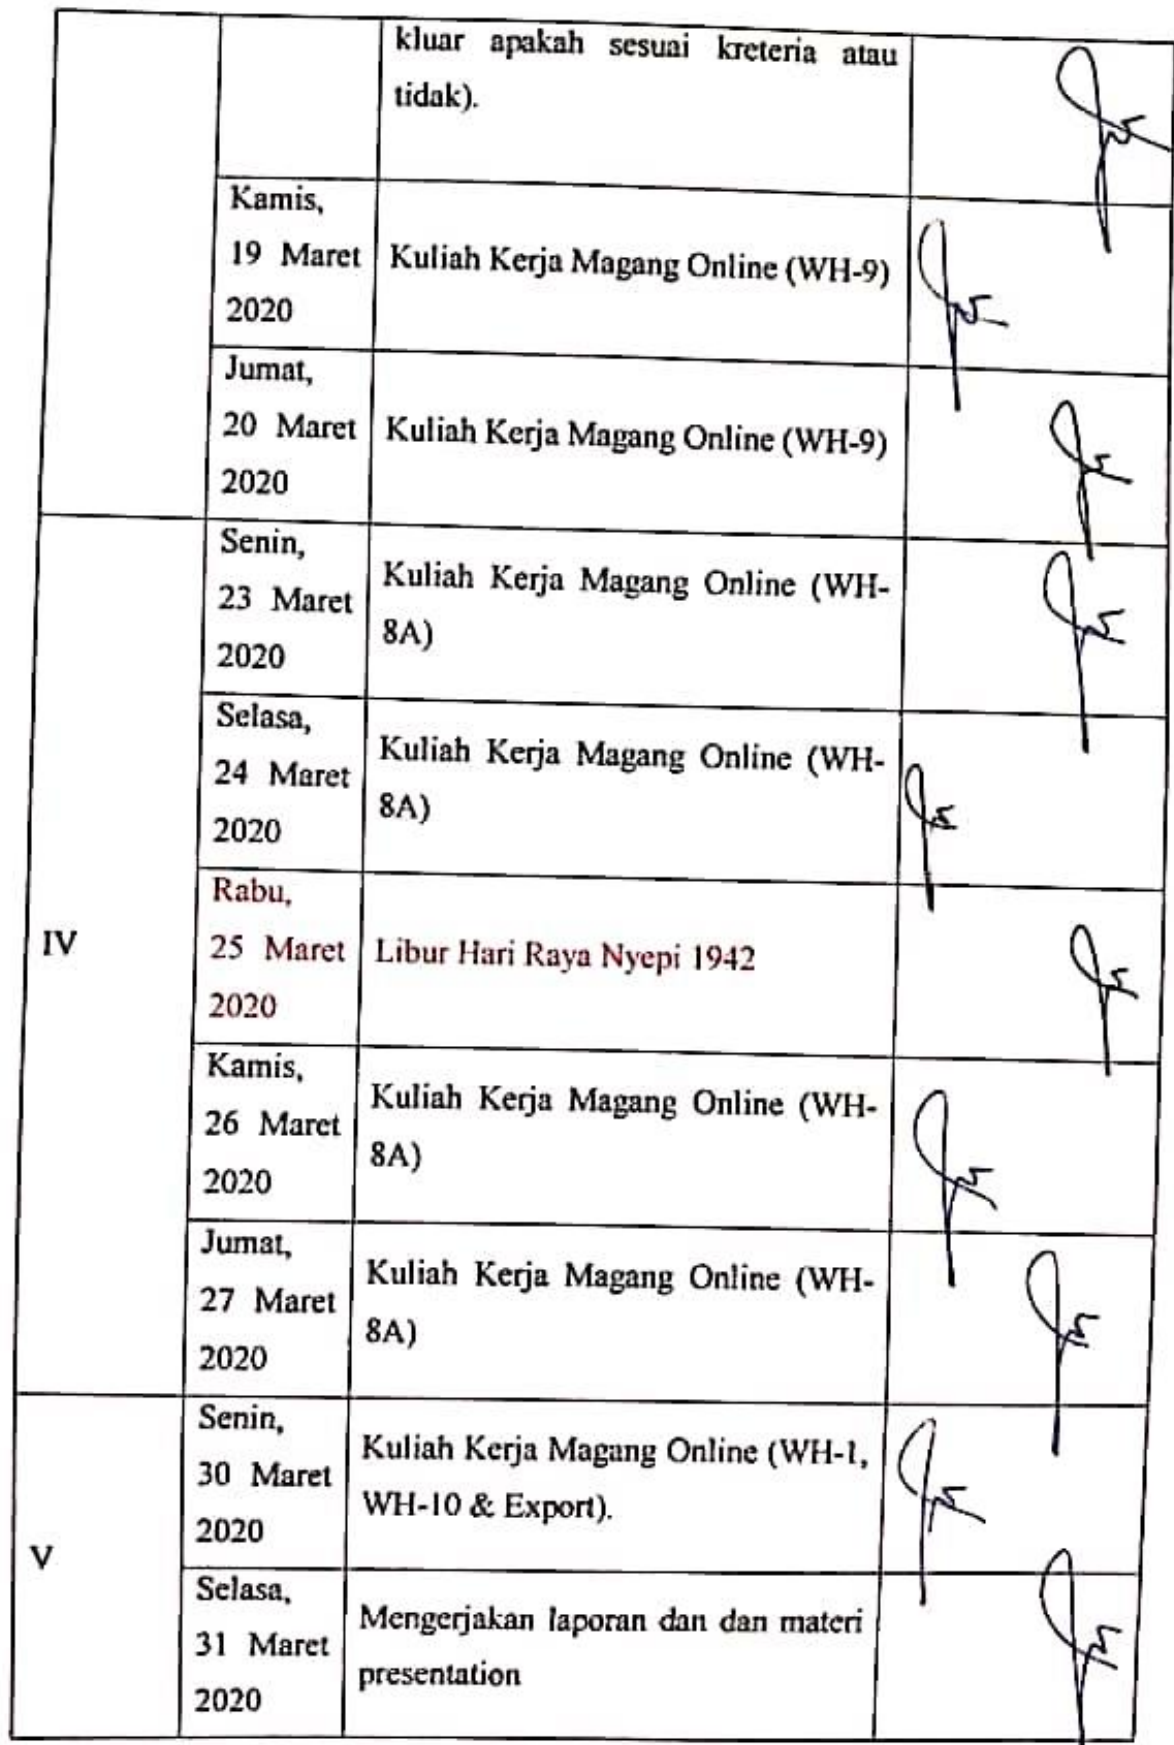 kluar apakah sesuai kreteria atau
tidak).
Kamis,
19 Maret
2020
Kuliah Kerja Magang Online (WH-9)
Jumat,
20 Maret
2020
Kuliah Kerja Magang Online (WH-9)
IV
Senin,
23 Maret
2020
Kuliah Kerja Magang Online (WH-
8A)
Selasa,
24 Maret
2020
Kuliah Kerja Magang Online (WH-
8A)
Rabu,
25 Maret
2020
Libur Hari Raya Nyepi 1942
Kamis,
26 Maret
2020
Kuliah Kerja Magang Online (WH-
8A)
Jumat,
27 Maret
2020
Kuliah Kerja Magang Online (WH-
8A)
V
Senin,
30 Maret
2020
Kuliah Kerja Magang Online (WH-1,
WH-10 & Export).
Selasa,
31 Maret
2020
Mengerjakan laporan dan dan materi
presentation